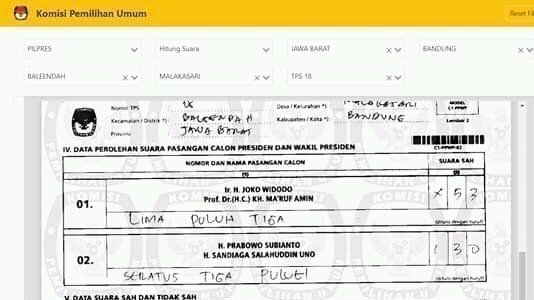 Komisi Pemilihan Umum
Reset
PILPRES
Hitung Suara
JAWA BARAT
BANDUNG
BALEENDAH
MALAKASARI
TPS 18
Nomor TPS
18
Desa / Kelurahan *)
MALAKASARI
MODEL
C1-PPWP
Kecamatan / Distrik *)
BALEENDAH
Kabupaten / Kota *)
BANDUNG
Lembar 2
Provinsi
JAWA BARAT
IV. DATA PEROLEHAN SUARA PASANGAN CALON PRESIDEN DAN WAKIL PRESIDEN
NOMOR DAN NAMA PASANGAN CALON
SUARA SAH
(1)
(2)
01.
Ir. H. JOKO WIDODO
Prof. Dr.(H.C.) KH. MA'RUF AMIN
X 5 3
LIMA PULUH TIGA
(ditulis dengan huruf)
02.
H. PRABOWO SUBIANTO
H. SANDIAGA SALAHUDDIN UNO
1 3 0
SERATUS TIGA PULUH
(ditulis dengan huruf)
V. DATA SUARA SAH DAN TIDAK SAH